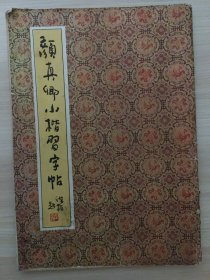 顏真卿小楷習字帖